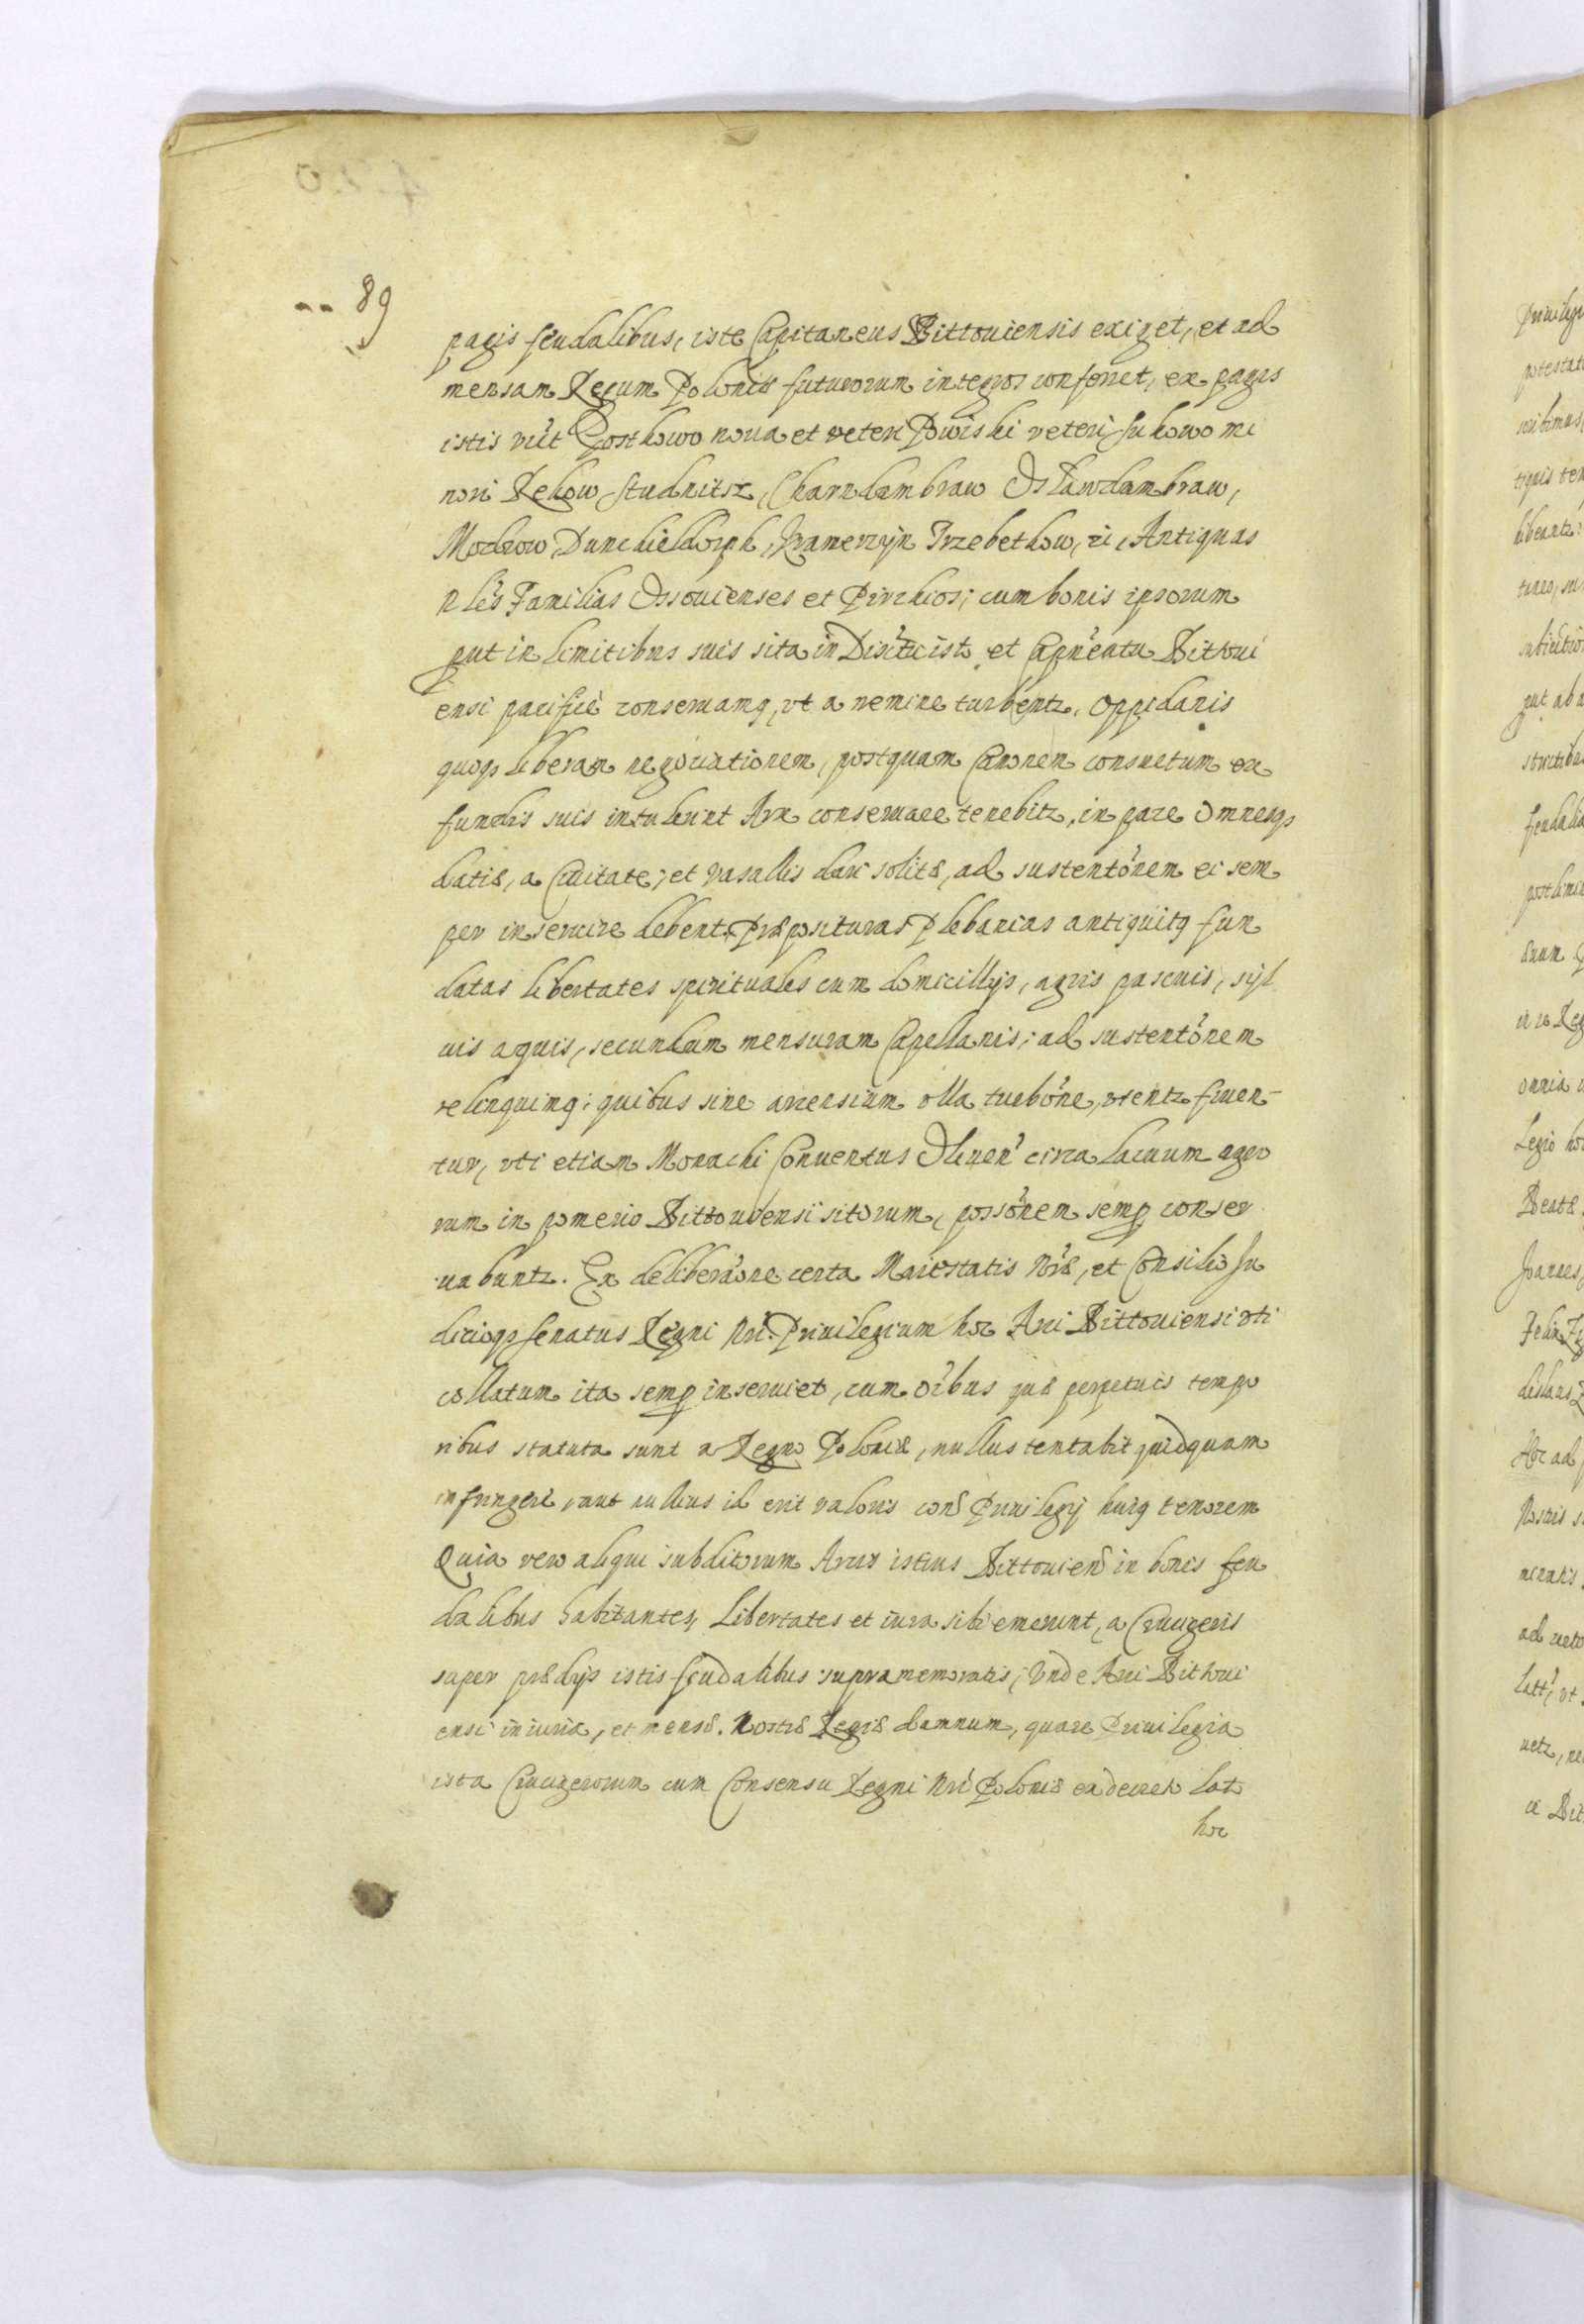 89
pagis feudalibus, iste Capitaneus Bittouiensis exiget, et ad
mensam Regum Poloniæ futurorum integros conferret, ex pagis
istis vut Gostkowo noua et veteri Powiski veteri Sukowo mi
nori Rekow, Studnitsz, Charndambraw Oslawdambraw,
Modrow, Dunckieldorph, Kramerzyn Trzebetkow, Antiquas
Nles Familias Ossouienses et Pirchios; cum bonis ipsorum
put in limitibus suis sita in Disticto isto et Capneatu Bittoui
ensi pacifice conseruamq, vt a nemine turbentr, Oppidanis
quoqs liberam negociationem, postquam Canonem consuetum ex
fundis suis intulerint Arx conseruare tenebitr, in pace Omnesqs
datiæ, a Ciuitate, et vasallis dari solitæ, ad sustentonem ei sem
per inseruire debent. Præposituras Plebanias antiquitq fun
datas libertates spirituales cum domicillijs, agris pascuis, syl
uis aquis, secundum mensuram Capellanis, ad sustentonem
relinquimq; quibus sine arcensium vlla turbone, vtentr fruen-
tur, vti etiam Monachi Conuentus Oliuen circa lacuum agro
rum in pomerio Bittouiensi sitorum, possonem semp conser
uabuntr. Ex deliberaone certa Maiestatis Nræ, et Consilio Ju
dicioqs Senatus Regni Nri Priuilegium hoc Arci Bittouiensi vti
collatum ita semp inseruiet, cum oibus quæ perpetuis tempo
ribus statuta sunt a Regno Poloniæ, nullus tentabit quidquam
infringere, aut nullius id erit valoris cond Priuilegij huiq tenorem
Quia vero aliqui subditorum Arcis istius Bittouien in bonis feu
dalibus habitantes, Libertates et iura sibi emerunt, a Crucigeris
super prædijs istis feudalibus supramemoratis, Vnde Arci Bithoui
ensi iniuria, et mensæ Nostræ Regiæ damnum, quare Priuilegia
ista Crucigerorum cum Consensu Regni Nri Poloniæ ex decreto lato
hoc